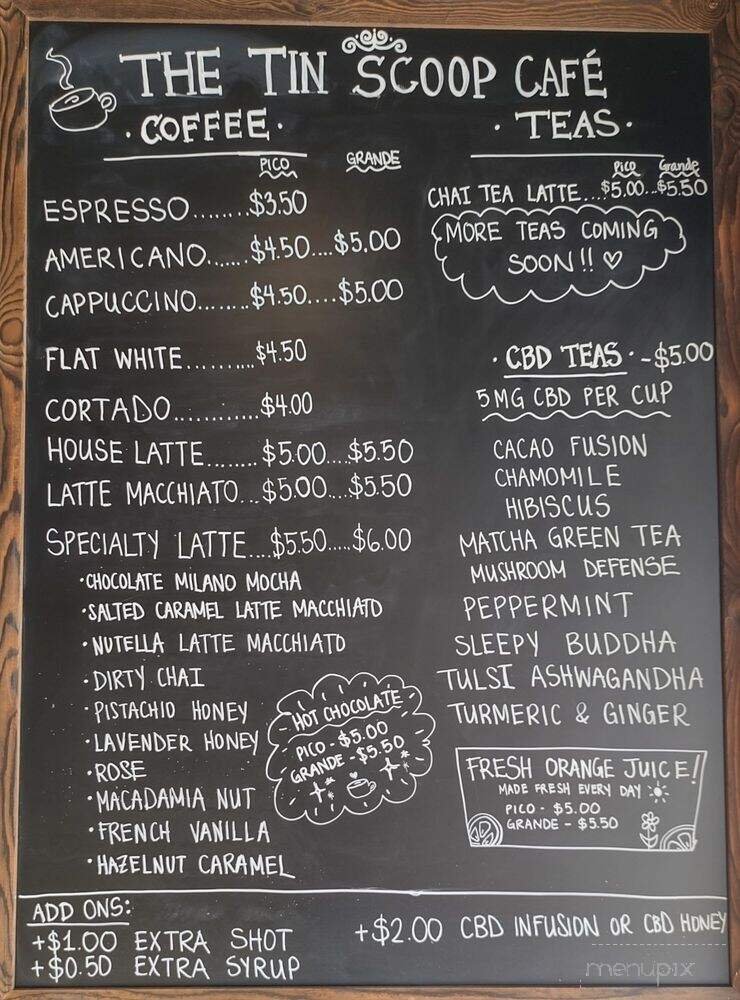 THE TIN SCOOP CAFÉ
· COFFEE ·
PICO GRANDE
ESPRESSO........$3.50
AMERICANO......$4.50....$5.00
CAPPUCCINO.......$4.50....$5.00
FLAT WHITE..........$4.50
CORTADO............$4.00
HOUSE LATTE........$5.00....$5.50
LATTE MACCHIATO...$5.00....$5.50
SPECIALTY LATTE...$5.50.....$6.00
·CHOCOLATE MILANO MOCHA
·SALTED CARAMEL LATTE MACCHIATO
·NUTELLA LATTE MACCHIATO
·DIRTY CHAI
·PISTACHIO HONEY
·LAVENDER HONEY
·ROSE
·MACADAMIA NUT
·FRENCH VANILLA
·HAZELNUT CARAMEL
HOT CHOCOLATE
PICO - $5.00
GRANDE - $5.50
· TEAS ·
Pico Grande
CHAI TEA LATTE...$5.00...$5.50
MORE TEAS COMING
SOON!! ♡
· CBD TEAS · - $5.00
5 MG CBD PER CUP
CACAO FUSION
CHAMOMILE
HIBISCUS
MATCHA GREEN TEA
MUSHROOM DEFENSE
PEPPERMINT
SLEEPY BUDDHA
TULSI ASHWAGANDHA
TURMERIC & GINGER
FRESH ORANGE JUICE!
MADE FRESH EVERY DAY
PICO - $5.00
GRANDE - $5.50
ADD ONS:
+$1.00 EXTRA SHOT
+$0.50 EXTRA SYRUP
+$2.00 CBD INFUSION OR CBD HONEY
menupix